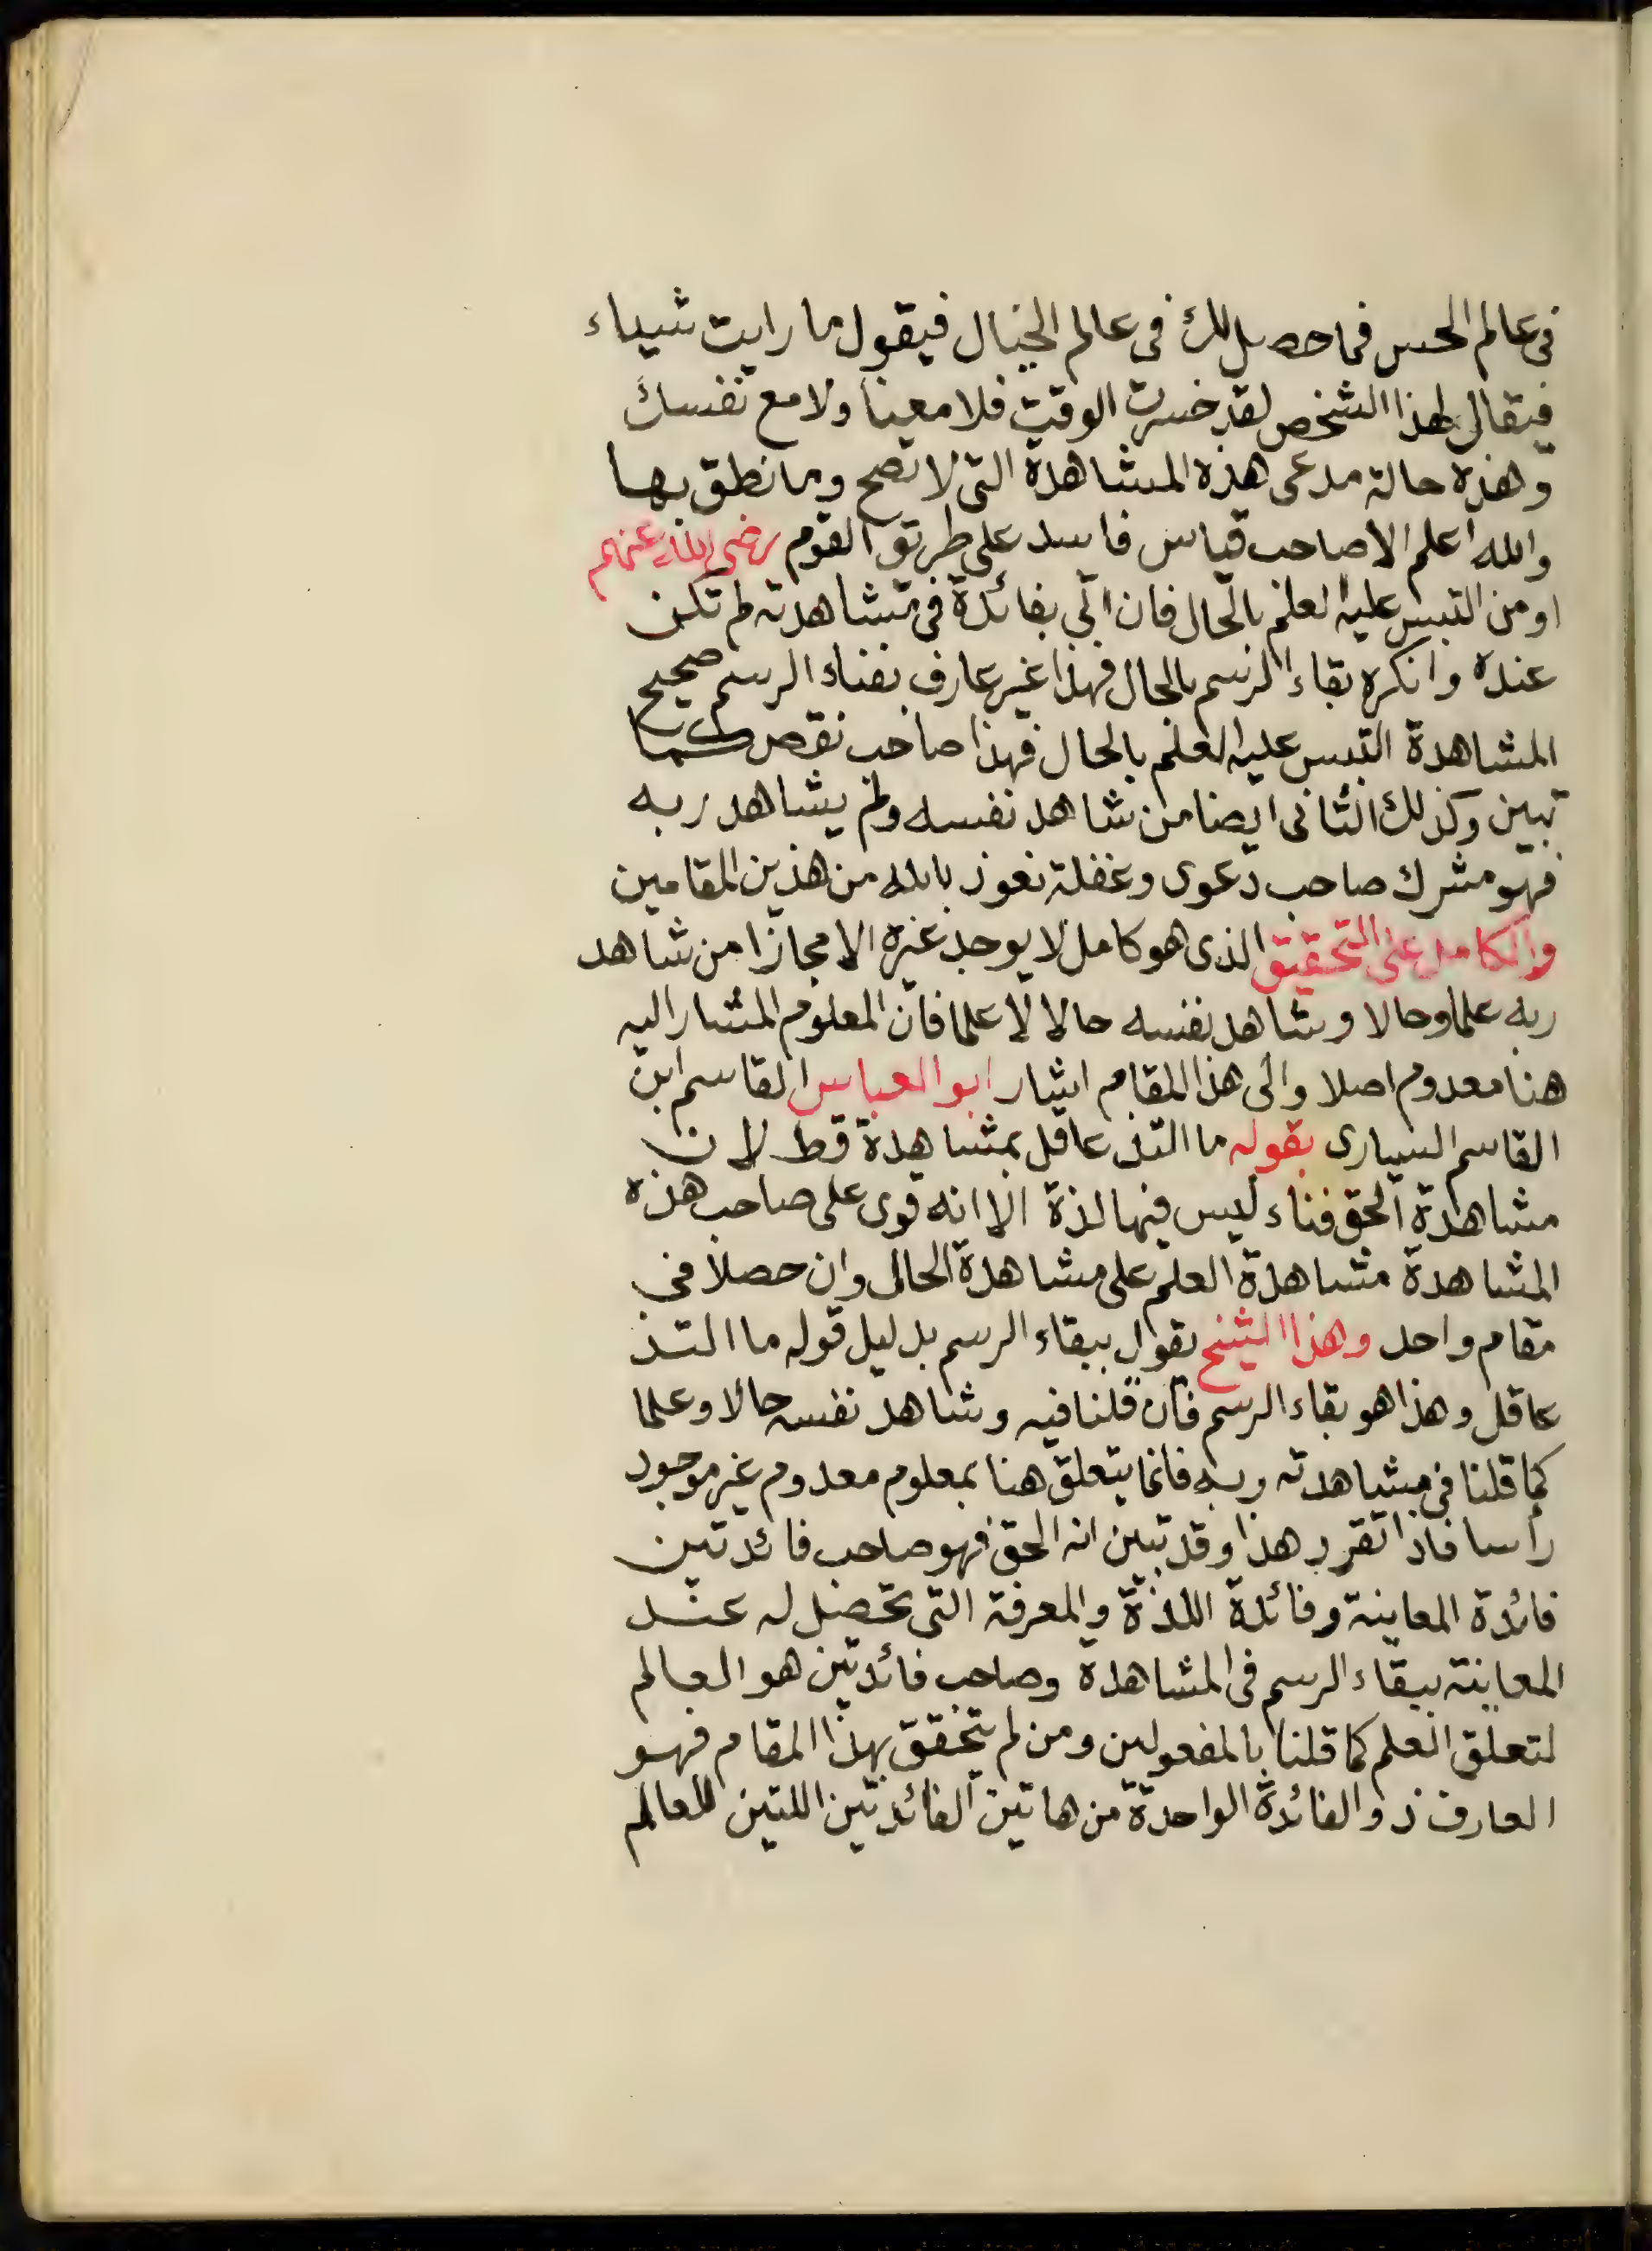 في عالم الحس فما حصل لك في عالم الخيال فيقول ما رايت شيياء
فيقال لهذا الشخص لقد خسرت الوقت فلا معينا ولا مع نفسك
وهذه حالة مدعى هذه المشاهدة التي لا تصح وما نطق بها
والله اعلم الا صاحب قياس فاسد على طريق القوم رضي الله عنهم
او من التبس عليه العلم بالحال فان اتي بفائدة في مشاهدته لم تكن
عنده وانكره بقاء الرسم بالحال فهذا غير عارف بفناء الرسم صحيح
المشاهدة التبس عليه العلم بالحال فهذا صاحب نقص كما
تبين وكذلك الثاني ايضا من شاهد نفسه ولم يشاهد ربه
فهو مشرك صاحب دعوى وغفلة نعوذ بالله من هذين المقامين
والكامل على التحقيق الذي هو كامل لا يوجد غيره الا مجازا من شاهد
ربه علما وحالا وشاهد نفسه حالا لا علما فان المعلوم المشار اليه
هنا معدوم اصلا والى هذا المقام اشار ابو العباس القاسم ابن
القاسم السياري بقوله ما التذ عاقل بمشاهدة قط لان
مشاهدة الحق فناء ليس فيها لذة الا انه قوى على صاحب هذه
المشاهدة مشاهدة العلم على مشاهدة الحال وان حصلا في
مقام واحد وهذا الشيخ يقول ببقاء الرسم بدليل قوله ما التذ
عاقل وهذا هو بقاء الرسم فان قلنا فيه وشاهد نفسه حالا وعلما
كما قلنا في مشاهدته ربه فانما يتعلق هنا بمعلوم معدوم غير موجود
رأسا فاذا تقرر هذا وقد تبين انه الحق فهو صاحب فائدتين
فائدة المعاينة وفائدة اللذة والمعرفة التي تحصل له عند
المعاينة ببقاء الرسم في المشاهدة وصاحب فائدتين هو العالم
لتعلق العلم كما قلنا بالمفعولين ومن لم يتحقق بهذا المقام فهو
العارف ذو الفائدة الواحدة من هاتين الفائدتين اللتين للعالم